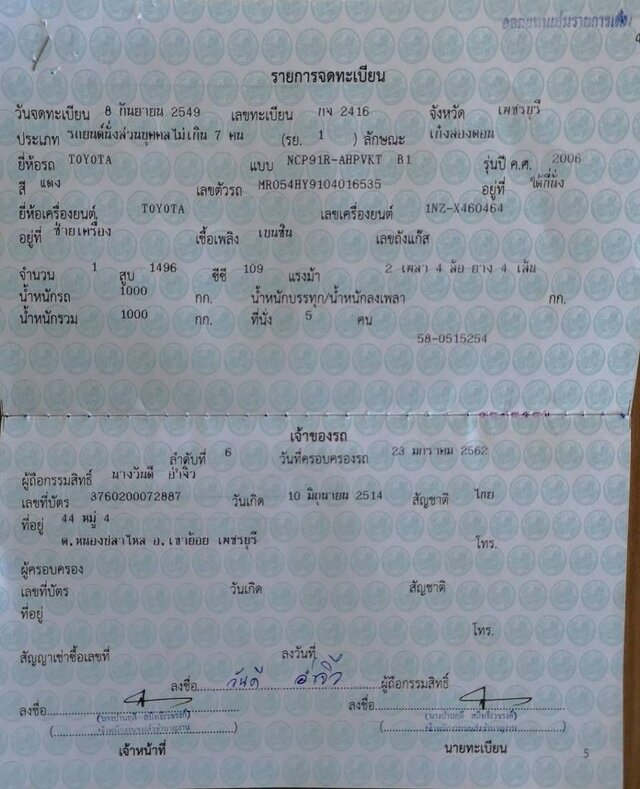 รายการจดทะเบียน
วันจดทะเบียน 8 กันยายน 2549 เลขทะเบียน กจ 2416 จังหวัด เพชรบุรี
ประเภท รถยนต์นั่งส่วนบุคคลไม่เกิน 7 คน (รย. 1 ) ลักษณะ เก๋งสองตอน
ยี่ห้อรถ TOYOTA แบบ NCP91R-AHPVKT B1 รุ่นปี ค.ศ. 2006
สี แดง เลขตัวรถ MR054HY9104016535 อยู่ที่ ใต้ที่นั่ง
ยี่ห้อเครื่องยนต์ TOYOTA เลขเครื่องยนต์ 1NZ-X460464
อยู่ที่ ซ้ายเครื่อง เชื้อเพลิง เบนซิน เลขถังแก๊ส
จำนวน 1 สูบ 1496 ซีซี 109 แรงม้า 2 เพลา 4 ล้อ ยาง 4 เส้น
น้ำหนักรถ 1000 กก. น้ำหนักบรรทุก/น้ำหนักลงเพลา กก.
น้ำหนักรวม 1000 กก. ที่นั่ง 5 คน
58-0515254
เจ้าของรถ
ลำดับที่ 6 วันที่ครอบครองรถ 23 มกราคม 2562
ผู้ถือกรรมสิทธิ์ นางวันดี อ่ำจิ๋ว
เลขที่บัตร 3760200072887 วันเกิด 10 มิถุนายน 2514 สัญชาติ ไทย
ที่อยู่ 44 หมู่ 4
ต.หนองปลาไหล อ.เขาย้อย เพชรบุรี โทร.
ผู้ครอบครอง
เลขที่บัตร วันเกิด สัญชาติ
ที่อยู่
โทร.
สัญญาเช่าซื้อเลขที่ ลงวันที่
ลงชื่อ วันดี อ่ำจิ๋ว ผู้ถือกรรมสิทธิ์
ลงชื่อ ลงชื่อ
เจ้าหน้าที่ นายทะเบียน
5